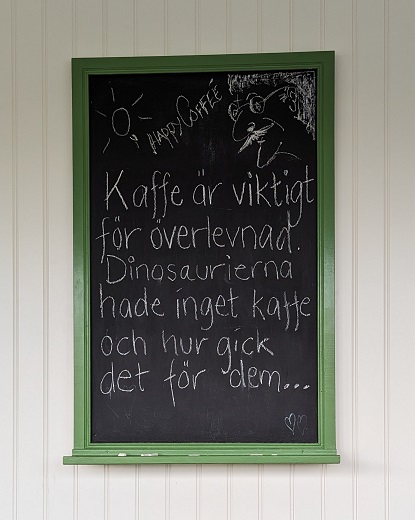 HAPPY COFFEÉ
Kaffe är viktigt
för överlevnad.
Dinosaurierna
hade inget kaffe
och hur gick
det för dem...